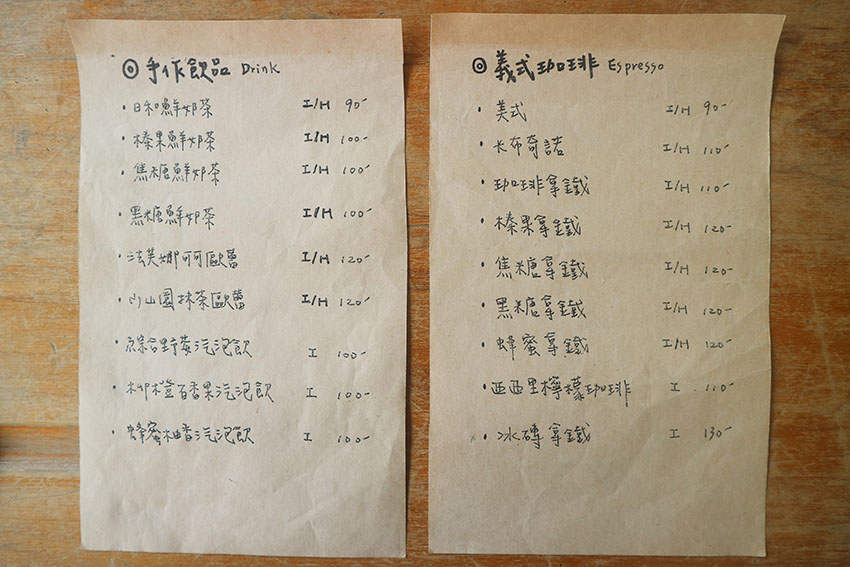 ◎ 手作飲品 Drink
・日和鮮奶茶 I/H 90-
・榛果鮮奶茶 I/H 100-
・焦糖鮮奶茶 I/H 100-
・黑糖鮮奶茶 I/H 100-
・法芙娜可可歐蕾 I/H 120-
・小山園抹茶歐蕾 I/H 120-
・綜合野莓汽泡飲 I 100-
・柳橙百香果汽泡飲 I 100-
・蜂蜜柚香汽泡飲 I 100-
◎ 義式珈琲 Espresso
・美式 I/H 90-
・卡布奇諾 I/H 110-
・珈琲拿鐵 I/H 110-
・榛果拿鐵 I/H 120-
・焦糖拿鐵 I/H 120-
・黑糖拿鐵 I/H 120-
・蜂蜜拿鐵 I/H 120-
・西西里檸檬珈琲 I 110-
×・冰磚拿鐵 I 130-